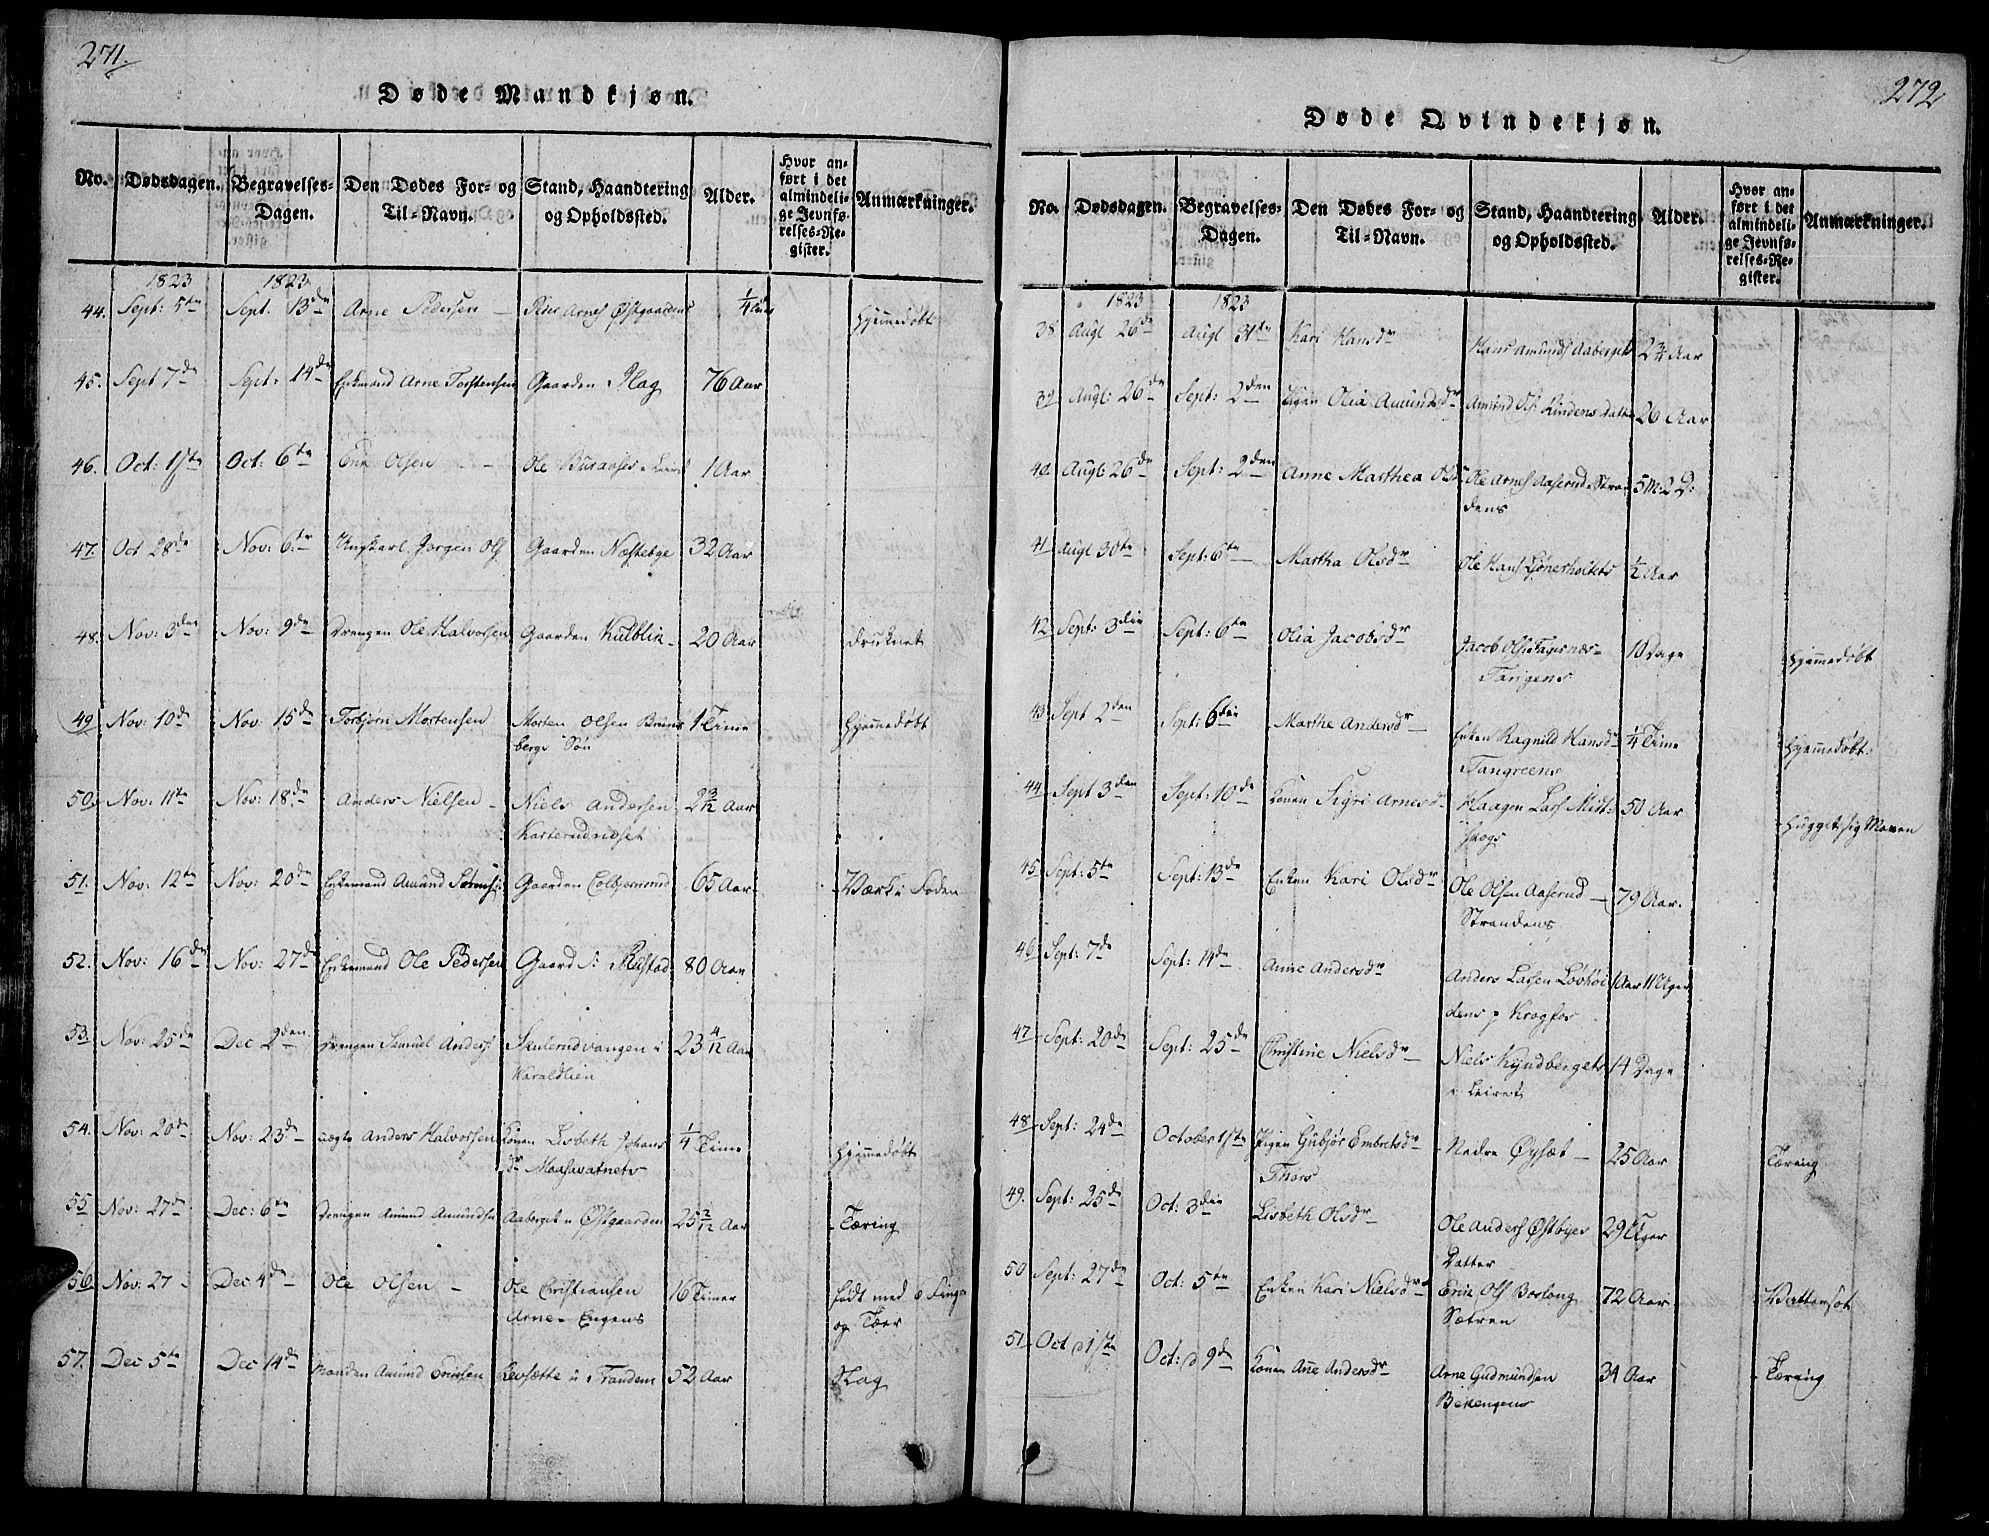 271.
Døde Mandkjøn.
No. Dødsdagen. Begravelses-Dagen. Den Dødes For- og Til-Navn. Stand, Haandtering og Opholdssted. Alder. Hvor anført i det almindelige Jevnførelses-Register. Anmærkninger.
1823 1823
44. Sept: 5te Sept. 13de Arne Pedersen Peder Arnes Østgaardens 1/4 Hjemmedøbt
45. Sept 7de Sept: 14de Enkemand Arne Torstensen Gaarden 76 Aar
46. Oct: 1ste Oct: 6te Olsen Ole 1 Aar
47. Oct 28de Nov: 6te Ungkarl Jørgen Ols Gaarden Næstebye 32 Aar
48. Nov: 3den Nov: 9de Drengen Ole Halvorsen Gaarden Kulblik 20 Aar druknet
49. Nov: 10de Nov: 15de Torbjørn Mortensen Morten Olsen Bruns 1 Time Hjemmedøbt
bergs Søn
50. Nov: 11te Nov: 18de Anders Nielsen Niels Andersen 2 3/12 Aar
Karterudnæset
51. Nov: 12te Nov: 20de Enkemand Amund Gaarden Colbjørnsrud 65 Aar Værk i Foden
52. Nov: 16de Nov: 27de Enkemand Ole Pedersen Gaard 80 Aar
53. Nov: 25de Dec 2den Drengen Samuel Anders Skulerudvangen i 23 4/12 Aar
Haraldlien
54. Nov: 20de Nov: 23de uægte Anders Halvorsen Konen Lisbeth Johans 1/4 Time Hjemmedøbt
dr Maasavatnets
55 Nov: 27de Dec: 6te Drengen Amund Amundsen Aaberget u Østgaarden 25 2/12 Aar Tæring
56. Nov: 27 Dec 4de Ole Olsen Ole Christiansen 16 Timer født med 6 Fingre
Arne Engens og Tæer
57. Dec 5te Dec 14de Manden Amund Ericksen Levsætte u Tranden 52 Aar Slag
272
Døde Qvindekjøn.
No. Dødsdagen. Begravelses-Dagen. Den Dødes For- og Til-Navn. Stand, Haandtering og Opholdssted. Alder. Hvor anført i det almindelige Jevnførelses-Register. Anmærkninger.
1823 1823
38 Augl 26de Augl 31te Kari Hansdr Hans Amunds Aaberget Aar
39 Augl: 26de Sept: 2den Pigen Olia Amundsdr Amund Ols Lindens Datter 26 Aar
40. Augl 26de Sept: 2den Anne Marthea Ols Ole Arnes Aaserud Stran 5 M: 2 D:
dens
41 Augl 30te Sept: 6te Martha Olsdr Ole Hans 1/2 Aar
42 Sept: 3die Sept: 6te Olia Jacobsdr Jacob Ols Fagernes 10 Dage Hjemmedøbt
Tangens
43 Sept 2den Sept: 6die Marthe Andersdr Enken Ragnild Hansdr 1/4 Time Hjemmedøbt
Tangreens
44 Sept 3den Sept: 10de Konen Sigri Arnesdr Haagen Lars Midt 50 Aar Hugget sig Maven
skogs
45 Sept: 5te Sept: 13de Enken Kari Olsdr Ole Olsen Aaserud 79 Aar.
Strandens
46 Sept: 7de Sept: 14de Anne Andersdr Anders Larsen Løvhøi 1 Aar 11 Uger
dens p Kragfos
47 Sept: 20de Sept: 25de Christine Nielsdr Niels Kyndbergets 14 Dage
i Leiret
48 Sept: 24de October 1ste Pigen Gubjør Embretsdr Nedre Øysæt 25 Aar Tæring
Thors
49. Sept: 25de Oct: 3die Lisbeth Olsdr Ole Anders Østbyes 29 Uger
Datter
50 Sept: 27de Oct: 5te Enken Kari Nielsdr Eric Ols Borlong 72 Aar Vattersot
Sætren
51 Oct 1ste Oct: 9de Konen Ane Andersdr Arne Gudmundsen 34 Aar Tæring
Bekengens